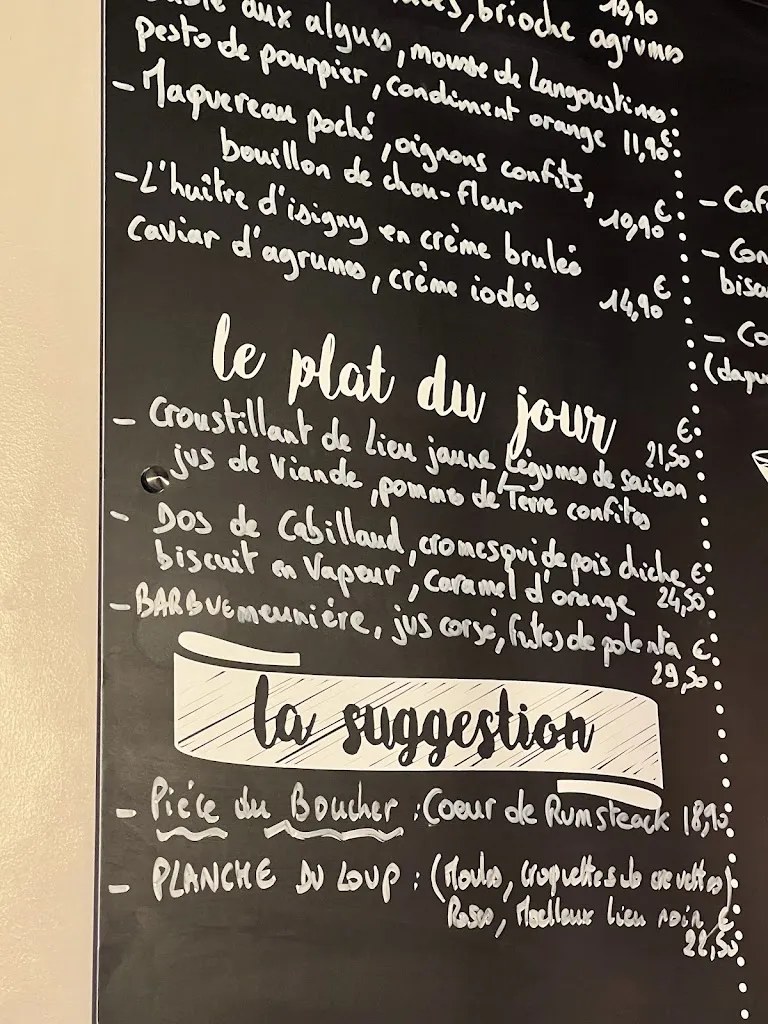 brioche agrumes 10,90
aux algues, mousse de Langoustines
pesto de pourpier, condiment orange 11,90€
- Maquereau poché, oignons confits,
bouillon de chou-fleur 10,90€
- L'huître d'isigny en crème brulée
caviar d'agrumes, crème iodée 14,90€
le plat du jour
- Croustillant de Lieu jaune, Légumes de saison 21,50€
jus de Viande, pommes de Terre confites
- Dos de Cabillaud, cromesqui de pois chiche
biscuit en Vapeur, Caramel d'orange 24,50€
- BARBUE meunière, jus corsé, frites de polenta €
29,50
la suggestion
- Pièce du Boucher : Coeur de Rumsteack 18,90
- PLANCHE DU LOUP : (Moules, Croquettes de crevettes)
Lieu noir €
22,50
- Caf
- Con
bisc
- Co